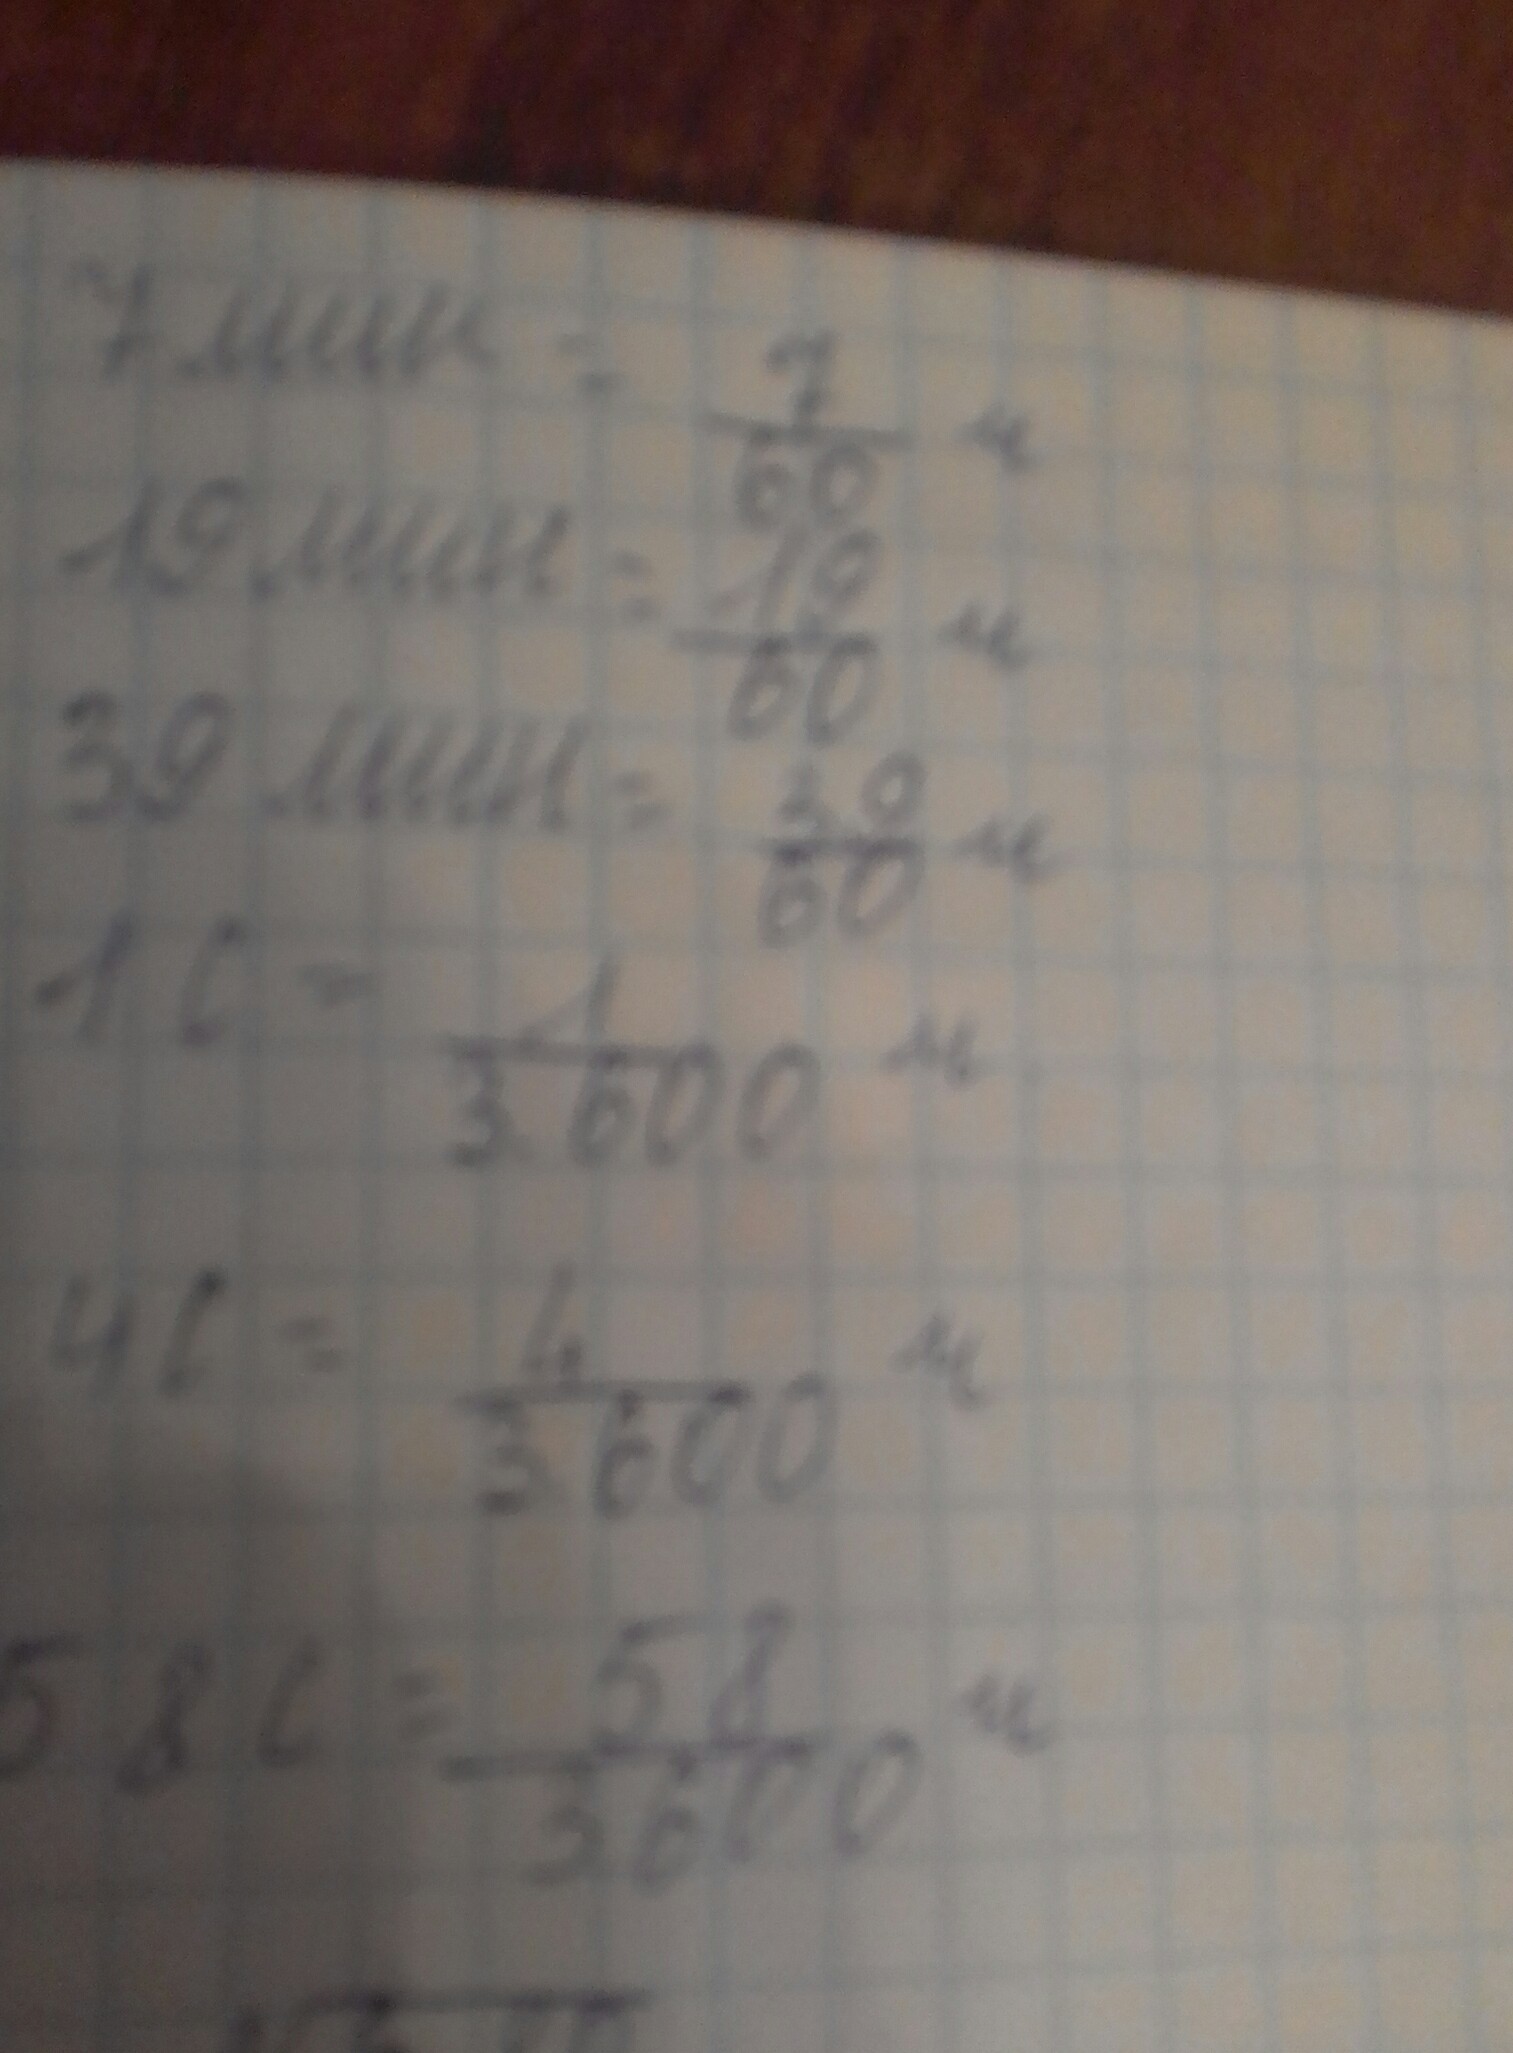 7 мин = 7/60 ч
19 мин = 19/60 ч
39 мин = 39/60 ч
1 с = 1/3600 ч
4 с = 4/3600 ч
58 с = 58/3600 ч